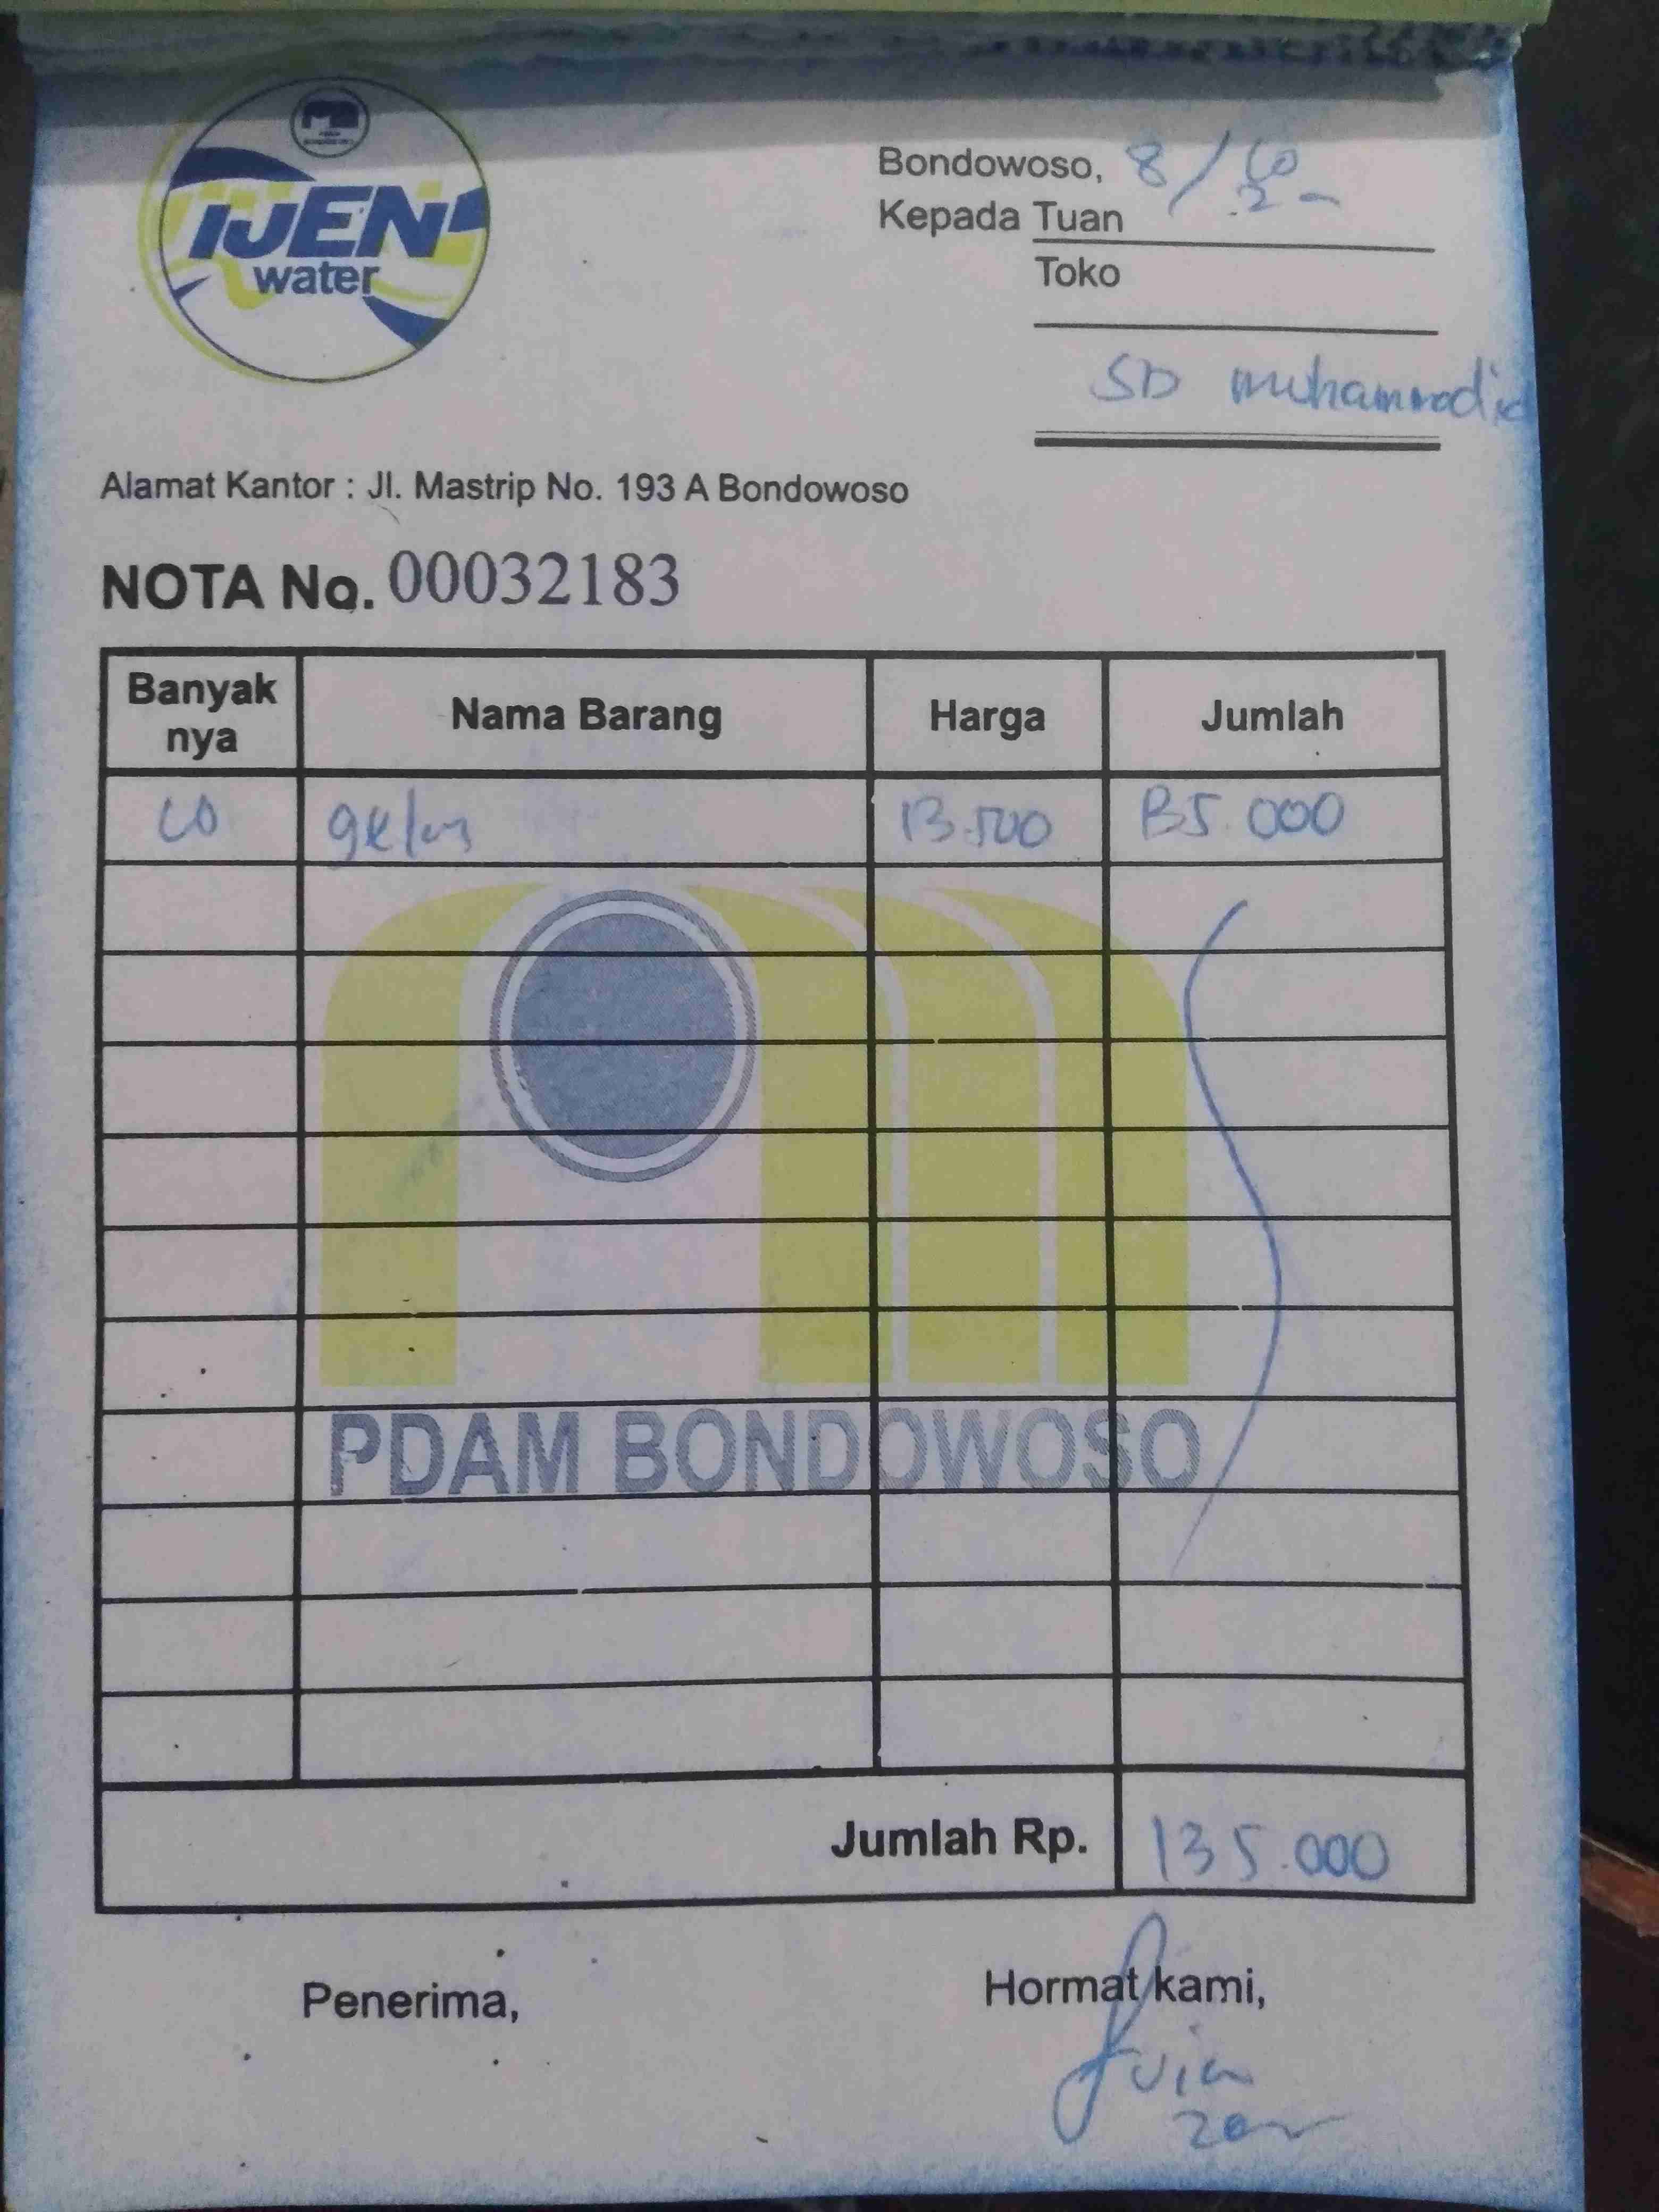 IJEN
water
Bondowoso, 8/10
Kepada Tuan
Toko
SD muhammad
Alamat Kantor : Jl. Mastrip No. 193 A Bondowoso
NOTA No. 00032183
Banyak nya Nama Barang Harga Jumlah
10 gelas 13.500 135.000
PDAM BONDOWOSO
Jumlah Rp. 135.000
Penerima, Hormat kami,